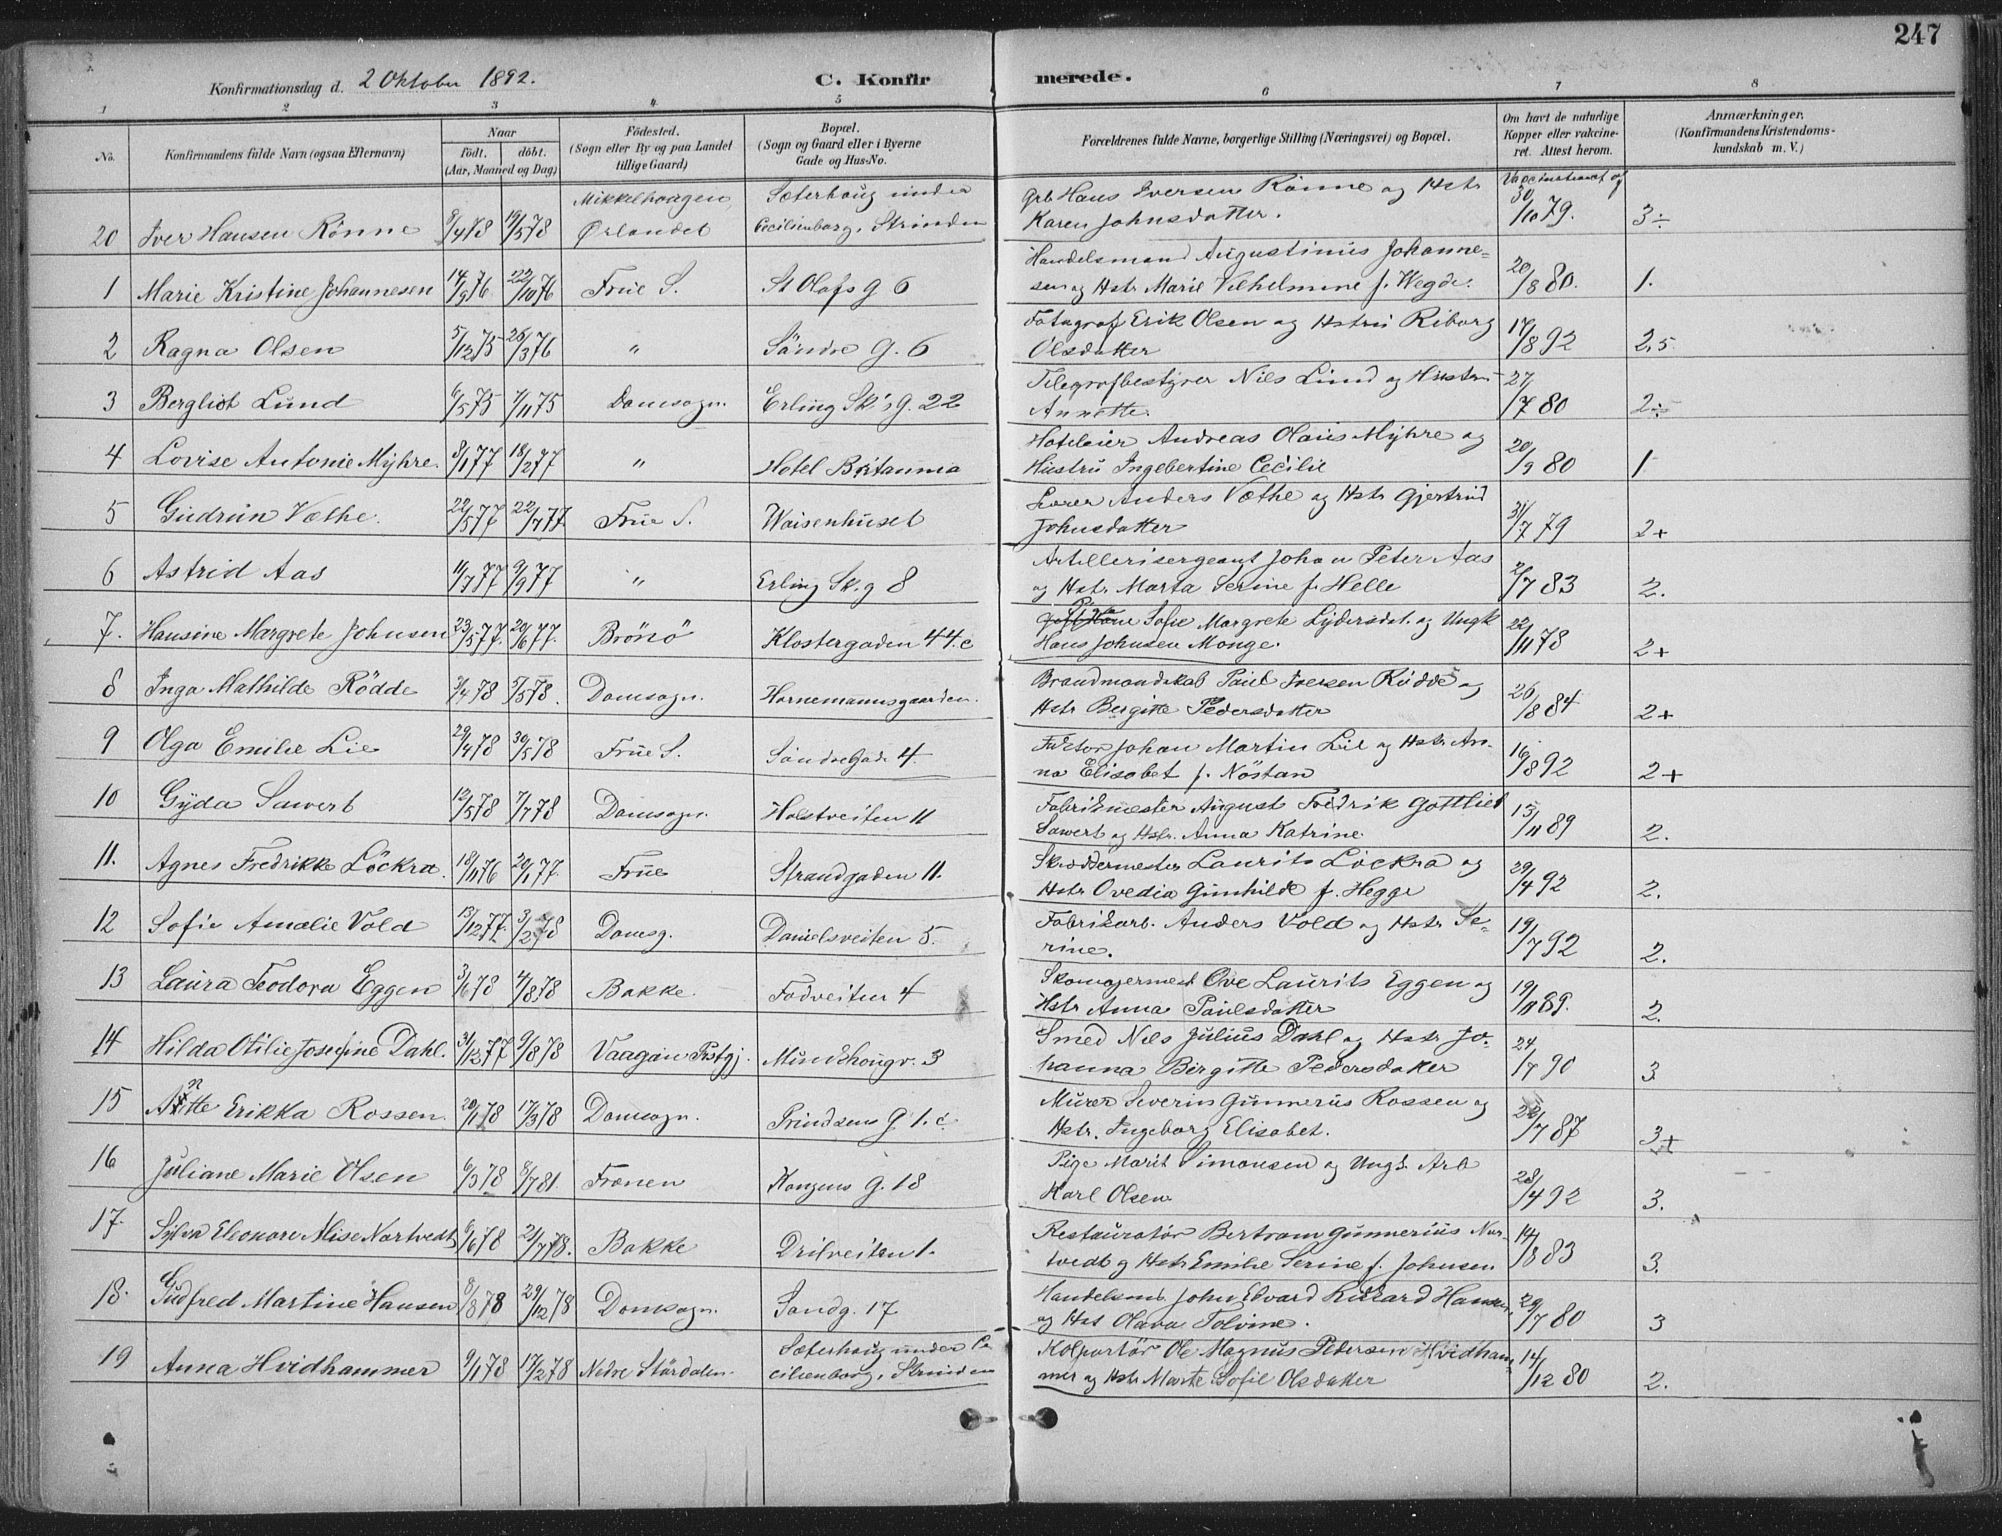 247
Konfirmationsdag d. 2 Oktober 1892. C. Konfirmerede.
1 2 3 4 5 6 7 8
No. Konfirmandens fulde Navn (ogsaa Efternavn) Naar Födt. döbt. (Aar, Maaned og Dag) Födested. (Sogn eller By og paa Landet tillige Gaard) Bopæl. (Sogn og Gaard eller i Byerne Gade og Hus-No. Forældrenes fulde Navne, borgerlige Stilling (Næringsvei) og Bopæl. Om havt de naturlige Kopper eller vakcineret. Attest herom. Anmærkninger. (Konfirmandens Kristendomskundskab m. V.)
Mikkelhaugen, Sæterhaug under Grb Hans Iversen Rönne og Hstr
20 Iver Hansen Rönne 8/4 78 19/5 78 Ørlandet Cecilienborg, Strinden Karen Johnsdatter. 30/10 79. 3÷
Handelsmand Augustinus Johanne-
1 Marie Kristine Johannesen 14/9 76 22/10 76 Frue S. St Olafs g 6 sen og Hstr Marie Vilhelmine f. Wegde. 20/8 80. 1.
Fotograf Erik Olsen og Hstru Riborg
2 Ragna Olsen 5/12 75 26/3 76 " Söndre g. 6 Olsdatter 17/8 92 2,5
Telegrafbestyrer Nils Lund og Hustru
3 Bergliot Lund 6/5 75 7/11 75 Domsogn. Erling Sk's g. 22 Annette. 27/7 80 2÷
Hoteleier Andreas Olaus Myhre og
4 Lovise Antonie Myhre. 3/1 77 18/2 77 " Hotel Britannia Hustru Ingebertine Cecilie 20/9 80 1
Lærer Anders Væthe og Hstr Gjertrud
5 Gudrun Væthe. 22/5 77 22/7 77. Frue S. Waisenhuset Johnsdatter 31/7 79 2+
Artillerisergeant Johan Peter Aas
6 Astrid Aas 11/7 77 9/9 77 " Erling Sk. g 8 og Hstr. Marta Serine f. Helle 2/7 83 2.
Sofie Margrete Lydersdat. og Ungk
7. Hansine Margrete Johnsen 23/5 77. 20/6 77. Brönö Klostergaden 44.c Hans Johnsen Monge. 22/11 78 2+
Brandmandskab Paul Iversen Rödde og
8 Inga Mathilde Rödde 3/4 78 5/5 78. Domsogn. Hornemannsgaarden. Hstr Birgitte Pedersdatter 26/8 84 2+
Johan Martin Lie og Hstr. An-
9 Olga Emilie Lie 29/4 78 30/5 78 Frue S. Söndregade 4. na Elisabet f. Nöstan 16/8 92 2+
Fabrikmester August Fredrik Gottlieb
10 Gyda Sawert 12/5 78 7/7 78 Domsogn. Holstveiten 11 Sawert og Hstr. Anna Katrine. 15/11 89 2.
Skræddermester Laurits Löckra og
11. Agnes Fredrikke Löckra. 18/11 76 20/1 77. Frue Strandgaden 11. Hstr Ovedia Gunhilde f. Hegge 29/4 92 2.
Fabrikarb. Anders Vold og Hstr Se-
12 Sofie Amalie Vold 13/12 77. 3/2 78 Domsg. Danielsveiten 5. rine. 19/7 92 2.
Skomagermest Ove Laurits Eggen og
13 Laura Teodora Eggen 3/6 78 4/8 78 Bakke. Fodveiten 4 Hstr Anna Paulsdatter 19/11 89. 2.
Smed Nils Julius Dahl og Hstr Jo-
14 Hilda Otilie Josefine Dahl. 31/12 77 9/8 78 Vaagan Prstgj. Mindshougv. 3 hanna Birgitte Pedersdatter 24/7 90 3
Murer Severin Gunnerus Rossen og
15 Antte Erikka Rossen. 20/1 78 17/3 78 Domsogn. Prindsens g 1.c. Hstr. Ingeborg Elisabet. 22/7 87 3+
Pige Marit Simonsen og Ungk. Arb
16 Juliane Marie Olsen 6/3 78 8/7 81. Frænen Kongens g. 18 Karl Olsen 28/4 92 3.
Restauratör Bertram Gunnerius Nor-
17. Sylva Eleonore Alise Nortvedt 6/6 78 21/7 78. Bakke Driveiten 1. tvedt og Hstr Emilie Serine f. Johnsen 14/8 83 3.
Handelsm. John Edvard Rikard Hansen
18. Gudfred Martine Hansen 8/8 78 29/12 78 Domsogn. Sandg. 17 og Hst Olava Tolvine. 29/7 80 3
Sæterhaug under Ce- Kolportör Ole Magnus Pedersen Hvidham-
19 Anna Hvidhammer 9/1 78 17/2 78 Nedre Stördalen. cilienborg, Strinden mer og Hstr Marte Sofie Olsdatter 14/12 80 2.